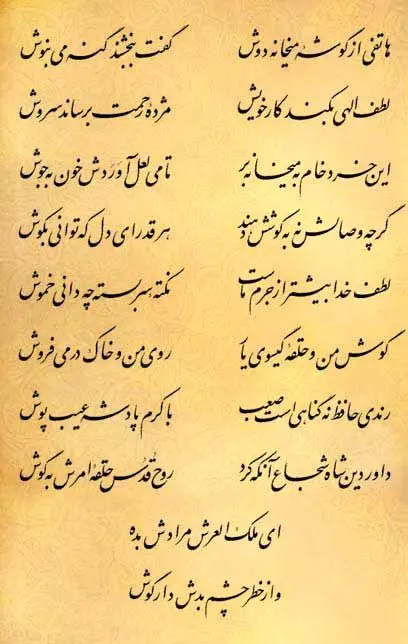 هاتفی از گوشهٔ میخانه دوش گفت ببخشند گنه می بنوش
لطف الهی بکند کار خویش مژدهٔ رحمت برساند سروش
این خرد خام به میخانه بر تا می لعل آوردش خون به جوش
گرچه وصالش نه به کوشش دهند هر قدر ای دل که توانی بکوش
لطف خدا بیشتر از جرم ماست نکته سربسته چه دانی خموش
گوش من و حلقهٔ گیسوی یار روی من و خاک در می فروش
رندی حافظ نه گناهی است صعب با کرم پادشه عیب پوش
داور دین شاه شجاع آنکه کرد روح قدس حلقهٔ امرش به گوش
ای ملک العرش مرادش بده
و از خطر چشم بدش دار گوش